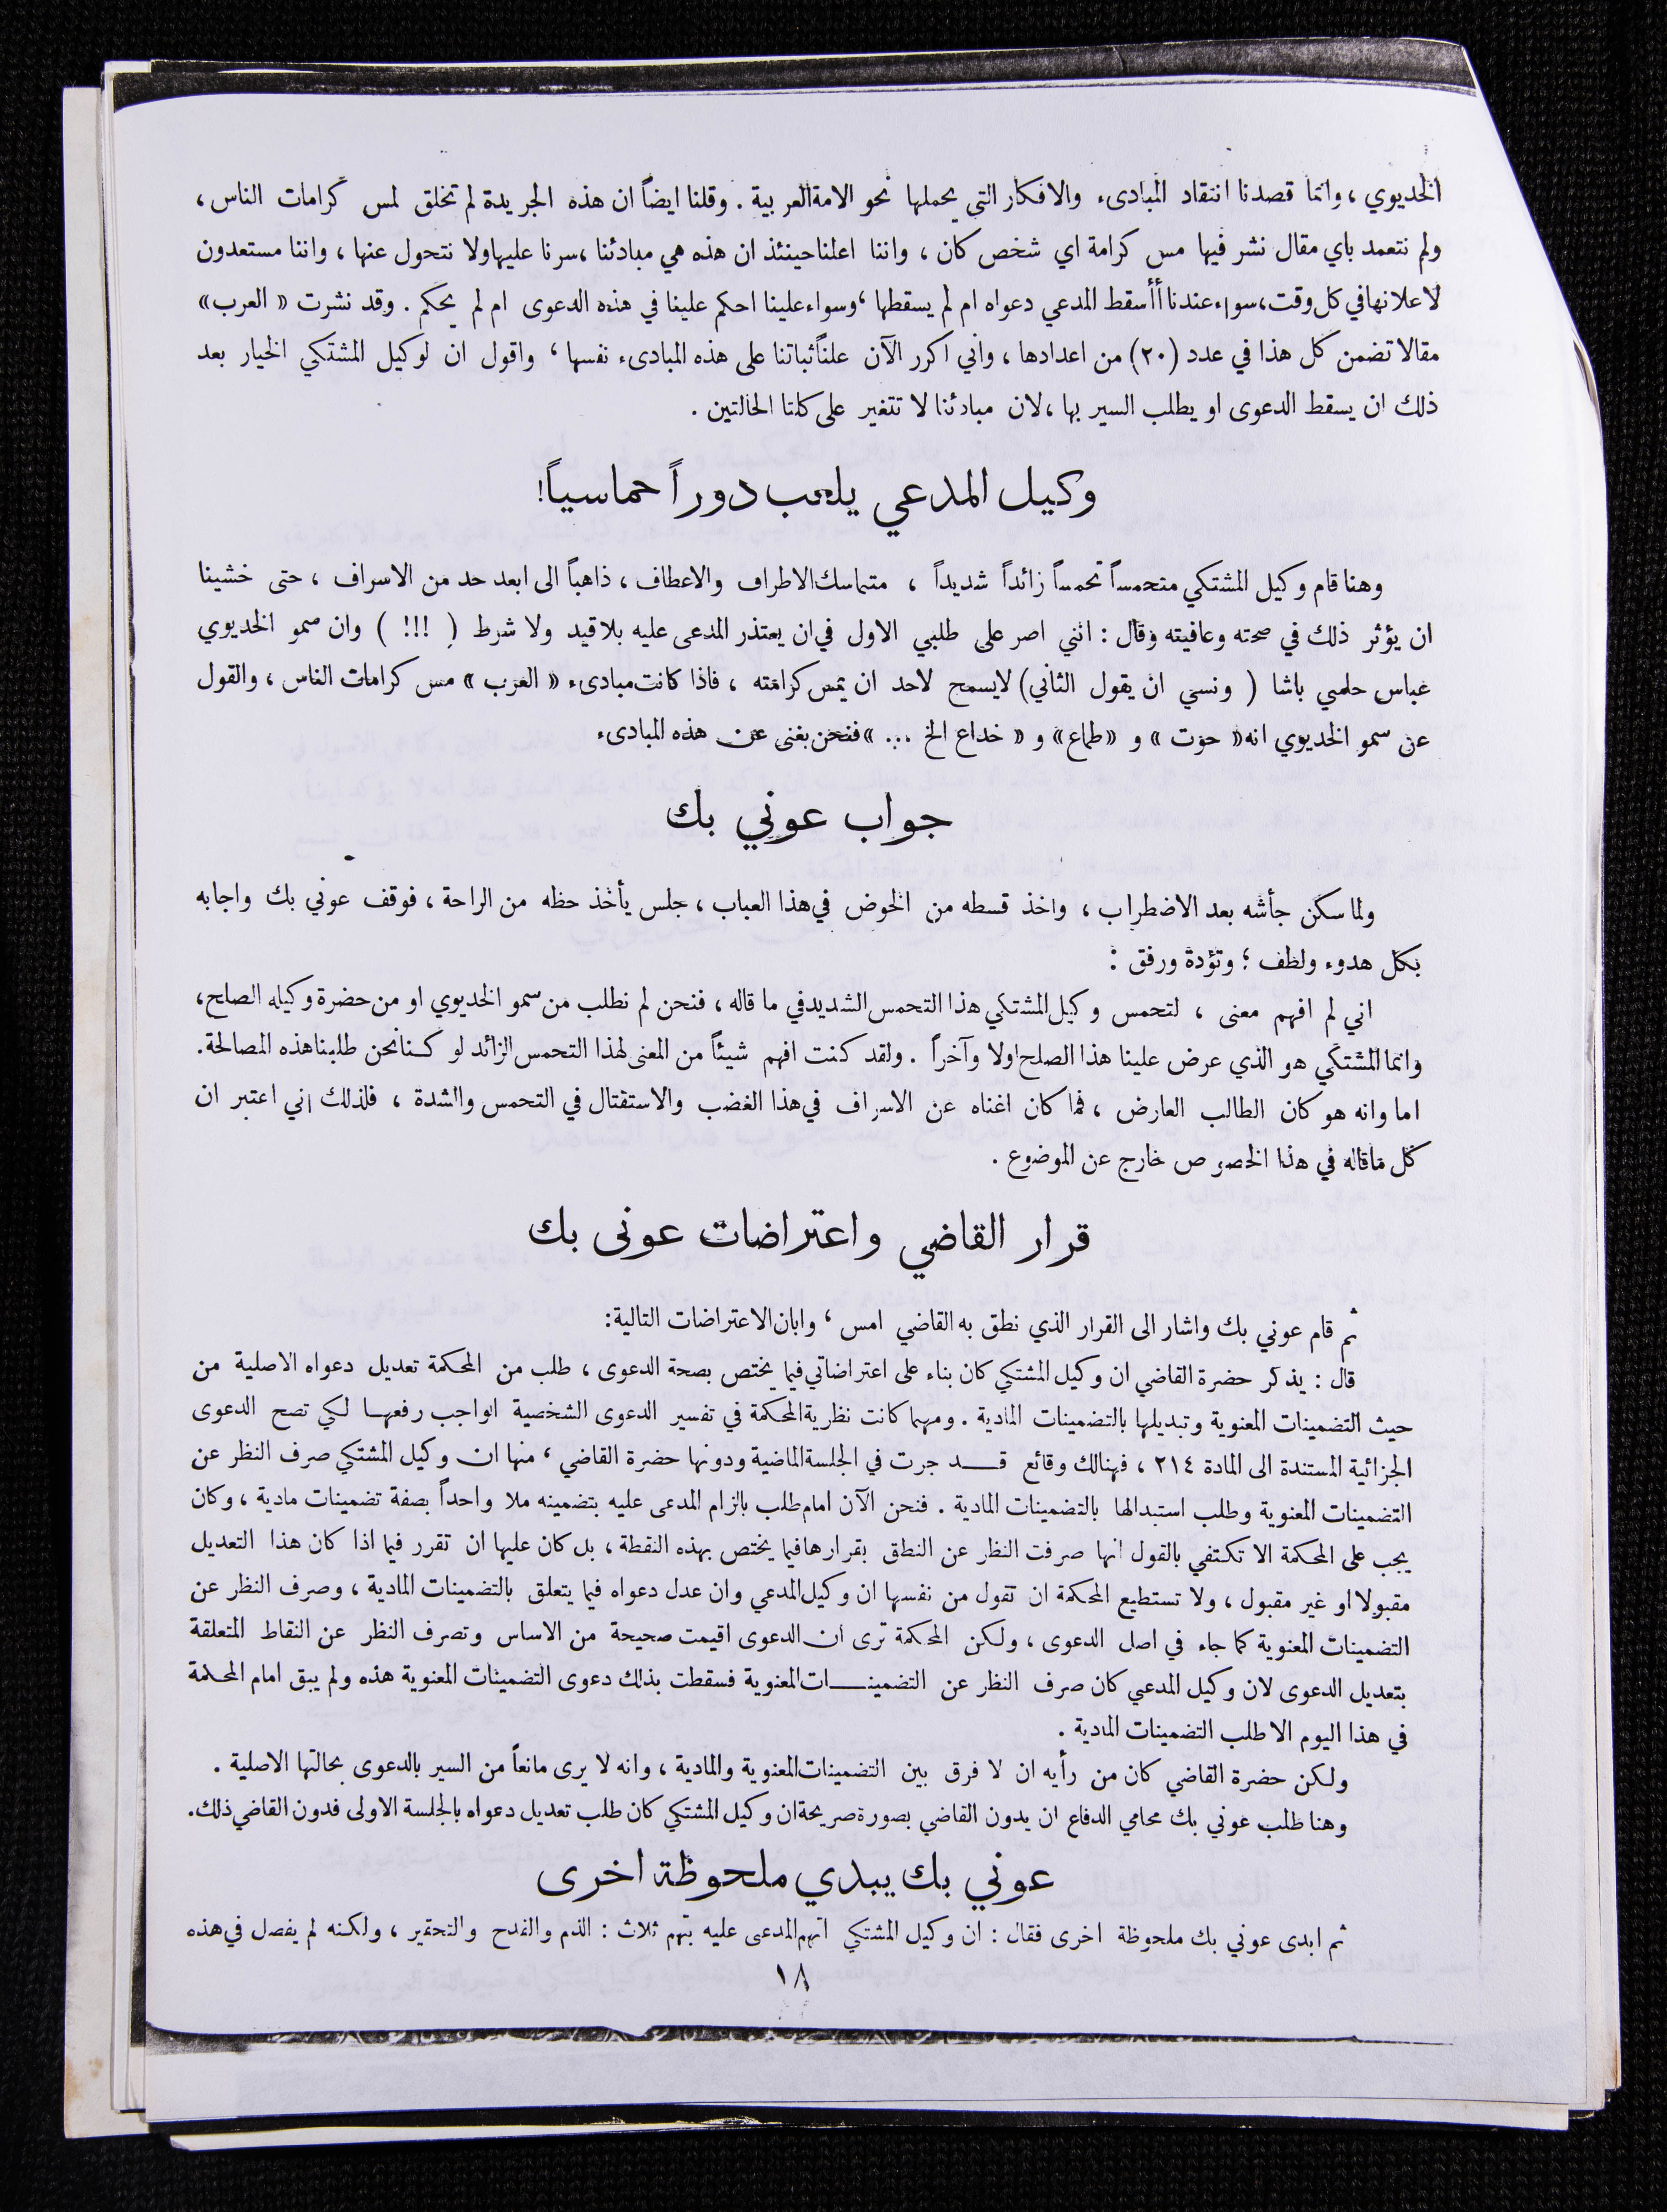 الخديوي ، وانما قصدنا انتقاد المبادىء والافكار التي يحملها نحو الامة العربية . وقلنا ايضاً ان هذه الجريدة لم تخلق لمس كرامات الناس ،
ولم نتعمد باي مقال نشر فيها مس كرامة اي شخص كان ، واننا اعلنا حينئذ ان هذه هي مبادئنا ، سرنا عليها ولا نتحول عنها ، واننا مستعدون
لاعلانها في كل وقت ، سواء عندنا أأسقط المدعي دعواه ام لم يسقطها ، وسواء علينا احكم علينا في هذه الدعوى ام لم يحكم . وقد نشرت « العرب »
مقالا تضمن كل هذا في عدد (٢٠) من اعدادها ، واني اكرر الآن علناً ثباتنا على هذه المبادىء نفسها ، واقول ان لوكيل المشتكي الخيار بعد
ذلك ان يسقط الدعوى او يطلب السير بها ، لان مبادئنا لا تتغير على كلتا الحالتين .
وكيل المدعي يلعب دوراً حماسياً !
وهنا قام وكيل المشتكي متحمساً تحمساً زائداً شديداً ، متماسك الاطراف والاعطاف ، ذاهباً الى ابعد حد من الاسراف ، حتى خشينا
ان يؤثر ذلك في صحته وعافيته وقال : انني اصر على طلبي الاول في ان يعتذر المدعى عليه بلا قيد ولا شرط ( !!! ) وان سمو الخديوي
عباس حلمي باشا ( ونسي ان يقول الثاني ) لا يسمح لاحد ان يمس كرامته ، فاذا كانت مبادىء « العرب » مس كرامات الناس ، والقول
عن سمو الخديوي انه « حوت » و « طماع » و « خداع الخ ... » فنحن بغنى عن هذه المبادىء
جواب عوني بك
ولما سكن جأشه بعد الاضطراب ، واخذ قسطه من الخوض في هذا العباب ، جلس يأخذ حظه من الراحة ، فوقف عوني بك واجابه
بكل هدوء ولطف ؛ وتؤدة ورفق :
اني لم افهم معنى ، لتحمس وكيل المشتكي هذا التحمس الشديد في ما قاله ، فنحن لم نطلب من سمو الخديوي او من حضرة وكيله الصلح ،
وانما المشتكي هو الذي عرض علينا هذا الصلح اولا وآخراً . ولقد كنت افهم شيئاً من المعنى لهذا التحمس الزائد لو كنا نحن طلبنا هذه المصالحة .
اما وانه هو كان الطالب العارض ، فما كان اغناه عن الاسراف في هذا الغضب والاستقتال في التحمس والشدة ، فلذلك اني اعتبر ان
كل ما قاله في هذا الخصوص خارج عن الموضوع .
قرار القاضي واعتراضات عونى بك
ثم قام عوني بك واشار الى القرار الذي نطق به القاضي امس ، وابان الاعتراضات التالية :
قال : يذكر حضرة القاضي ان وكيل المشتكي كان بناء على اعتراضاتي فيما يختص بصحة الدعوى ، طلب من المحكمة تعديل دعواه الاصلية من
حيث التضمينات المعنوية وتبديلها بالتضمينات المادية . ومهما كانت نظرية المحكمة في تفسير الدعوى الشخصية الواجب رفعها لكي تصح الدعوى
الجزائية المستندة الى المادة ٢١٤ ، فهنالك وقائع قد جرت في الجلسة الماضية ودونها حضرة القاضي ، منها ان وكيل المشتكي صرف النظر عن
التضمينات المعنوية وطلب استبدالها بالتضمينات المادية . فنحن الآن امام طلب بالزام المدعى عليه بتضمينه ملا واحداً بصفة تضمينات مادية ، وكان
يجب على المحكمة الا تكتفي بالقول انها صرفت النظر عن النطق بقرارها فيما يختص بهذه النقطة ، بل كان عليها ان تقرر فيما اذا كان هذا التعديل
مقبولا او غير مقبول ، ولا تستطيع المحكمة ان تقول من نفسها ان وكيل المدعي وان عدل دعواه فيما يتعلق بالتضمينات المادية ، وصرف النظر عن
التضمينات المعنوية كما جاء في اصل الدعوى ، ولكن المحكمة ترى ان الدعوى اقيمت صحيحة من الاساس وتصرف النظر عن النقاط المتعلقة
بتعديل الدعوى لان وكيل المدعي كان صرف النظر عن التضمينات المعنوية فسقطت بذلك دعوى التضمينات المعنوية هذه ولم يبق امام المحكمة
في هذا اليوم الا طلب التضمينات المادية .
ولكن حضرة القاضي كان من رأيه ان لا فرق بين التضمينات المعنوية والمادية ، وانه لا يرى مانعاً من السير بالدعوى بحالتها الاصلية .
وهنا طلب عوني بك محامي الدفاع ان يدون القاضي بصورة صريحة ان وكيل المشتكي كان طلب تعديل دعواه بالجلسة الاولى فدون القاضي ذلك .
عوني بك يبدي ملحوظة اخرى
ثم ابدى عوني بك ملحوظة اخرى فقال : ان وكيل المشتكي اتهم المدعى عليه بتهم ثلاث : الذم والقدح والتحقير ، ولكنه لم يفصل في هذه
١٨